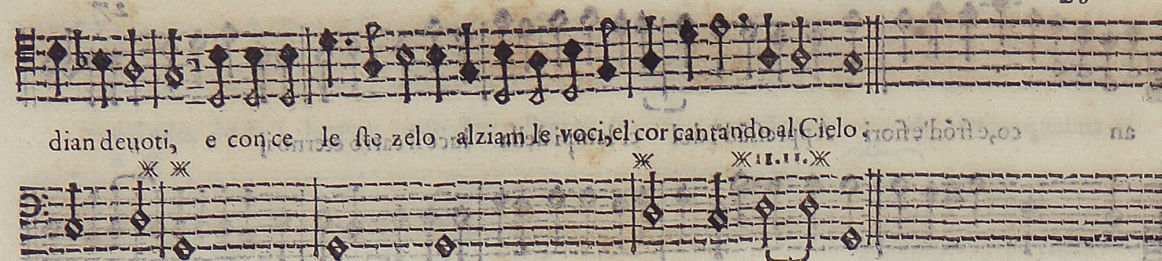 dian deuoti, e con ce le ste zelo alziam le voci, el cor cantando al Cielo.
11. 11.